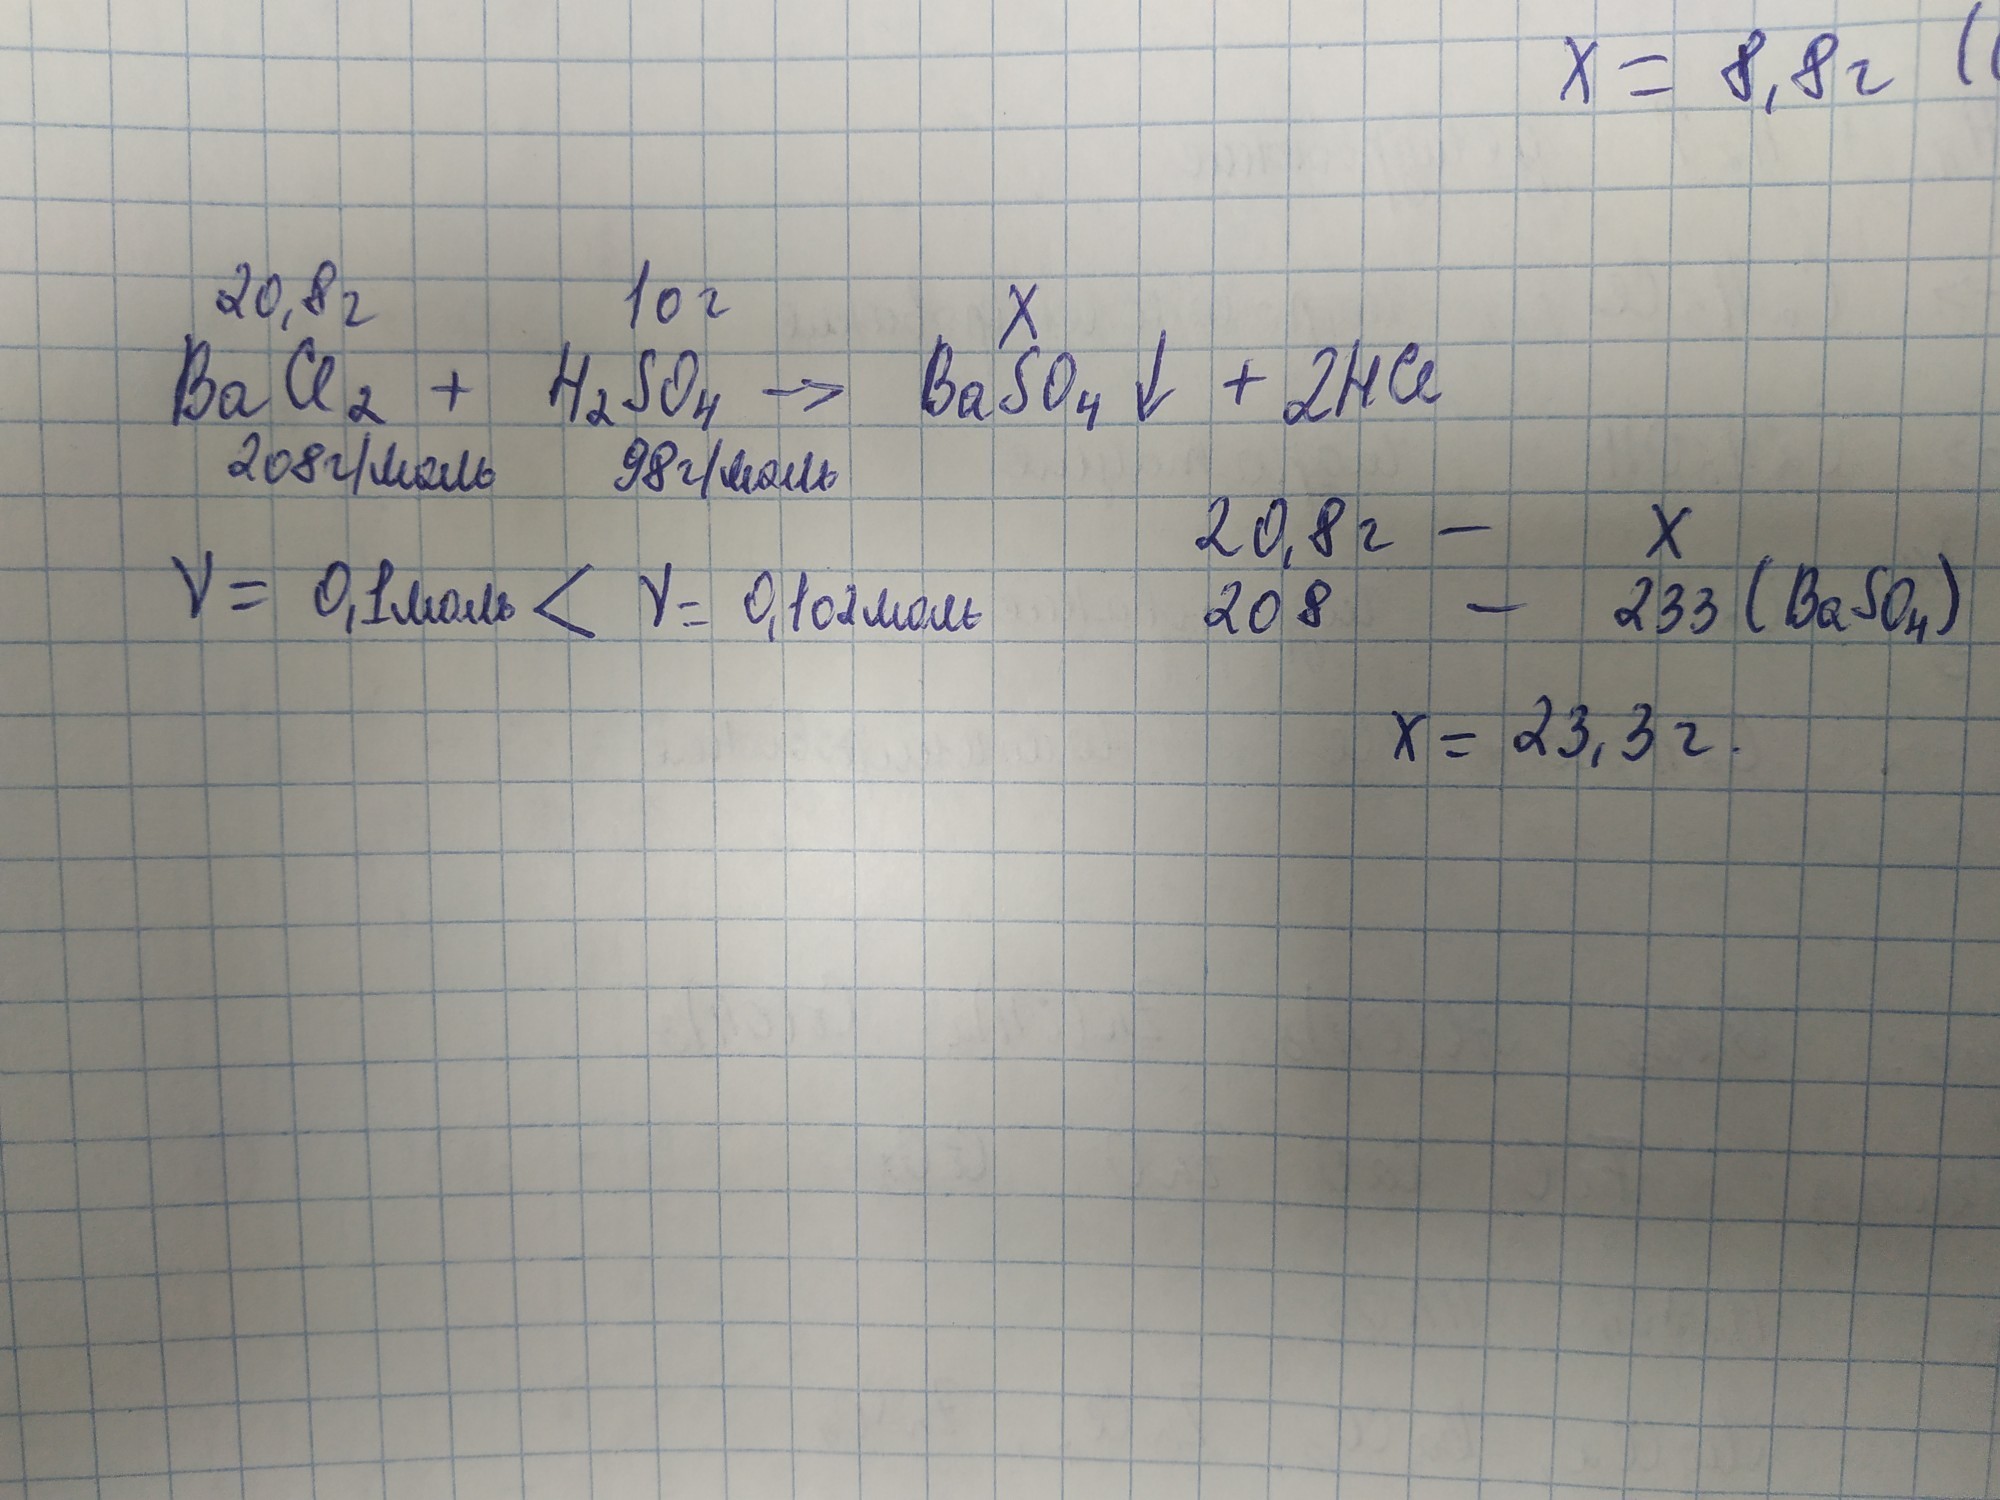 X = 8,8г (
20,8г 10г X
BaCl₂ + H₂SO₄ → BaSO₄↓ + 2HCl
208г/моль 98г/моль
20,8г – X
ν = 0,1моль < ν = 0,102моль
208 – 233 (BaSO₄)
x = 23,3г.